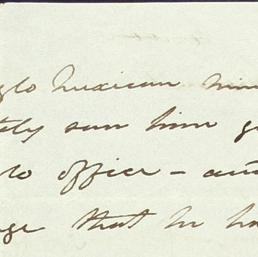 glo Mexican min
tely seen him g
to office - and
ge that he ha